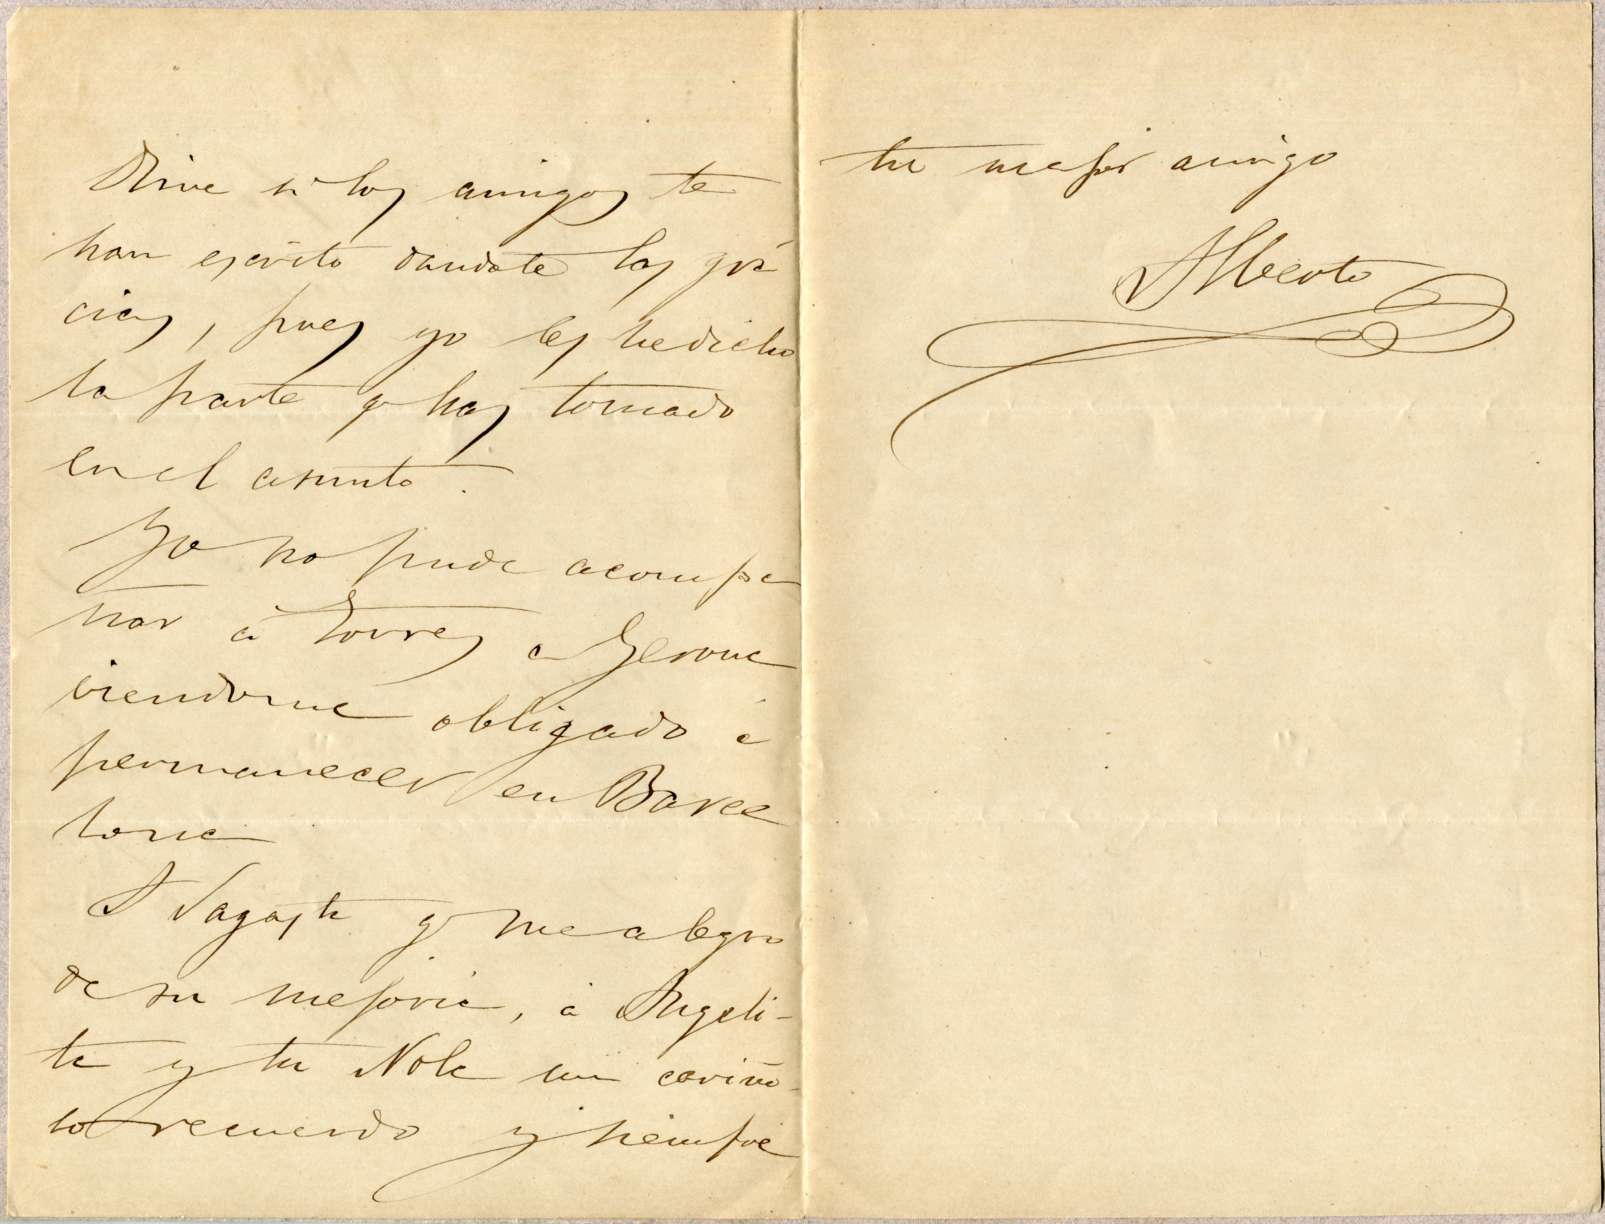 Dime si los amigos te
han escrito dandote las gra
cias, pues yo les he dicho
la parte q has tomado
en el asunto.
Yo no pude acompa
ñar á Torres a Gerona
viendome obligado á
permanecer en Barce
lona
A Sagasta q me alegro
de su mejoria, á Angeli-
ta y tu Nola un cariño-
so recuerdo y siempre
tu mejor amigo
Alberto